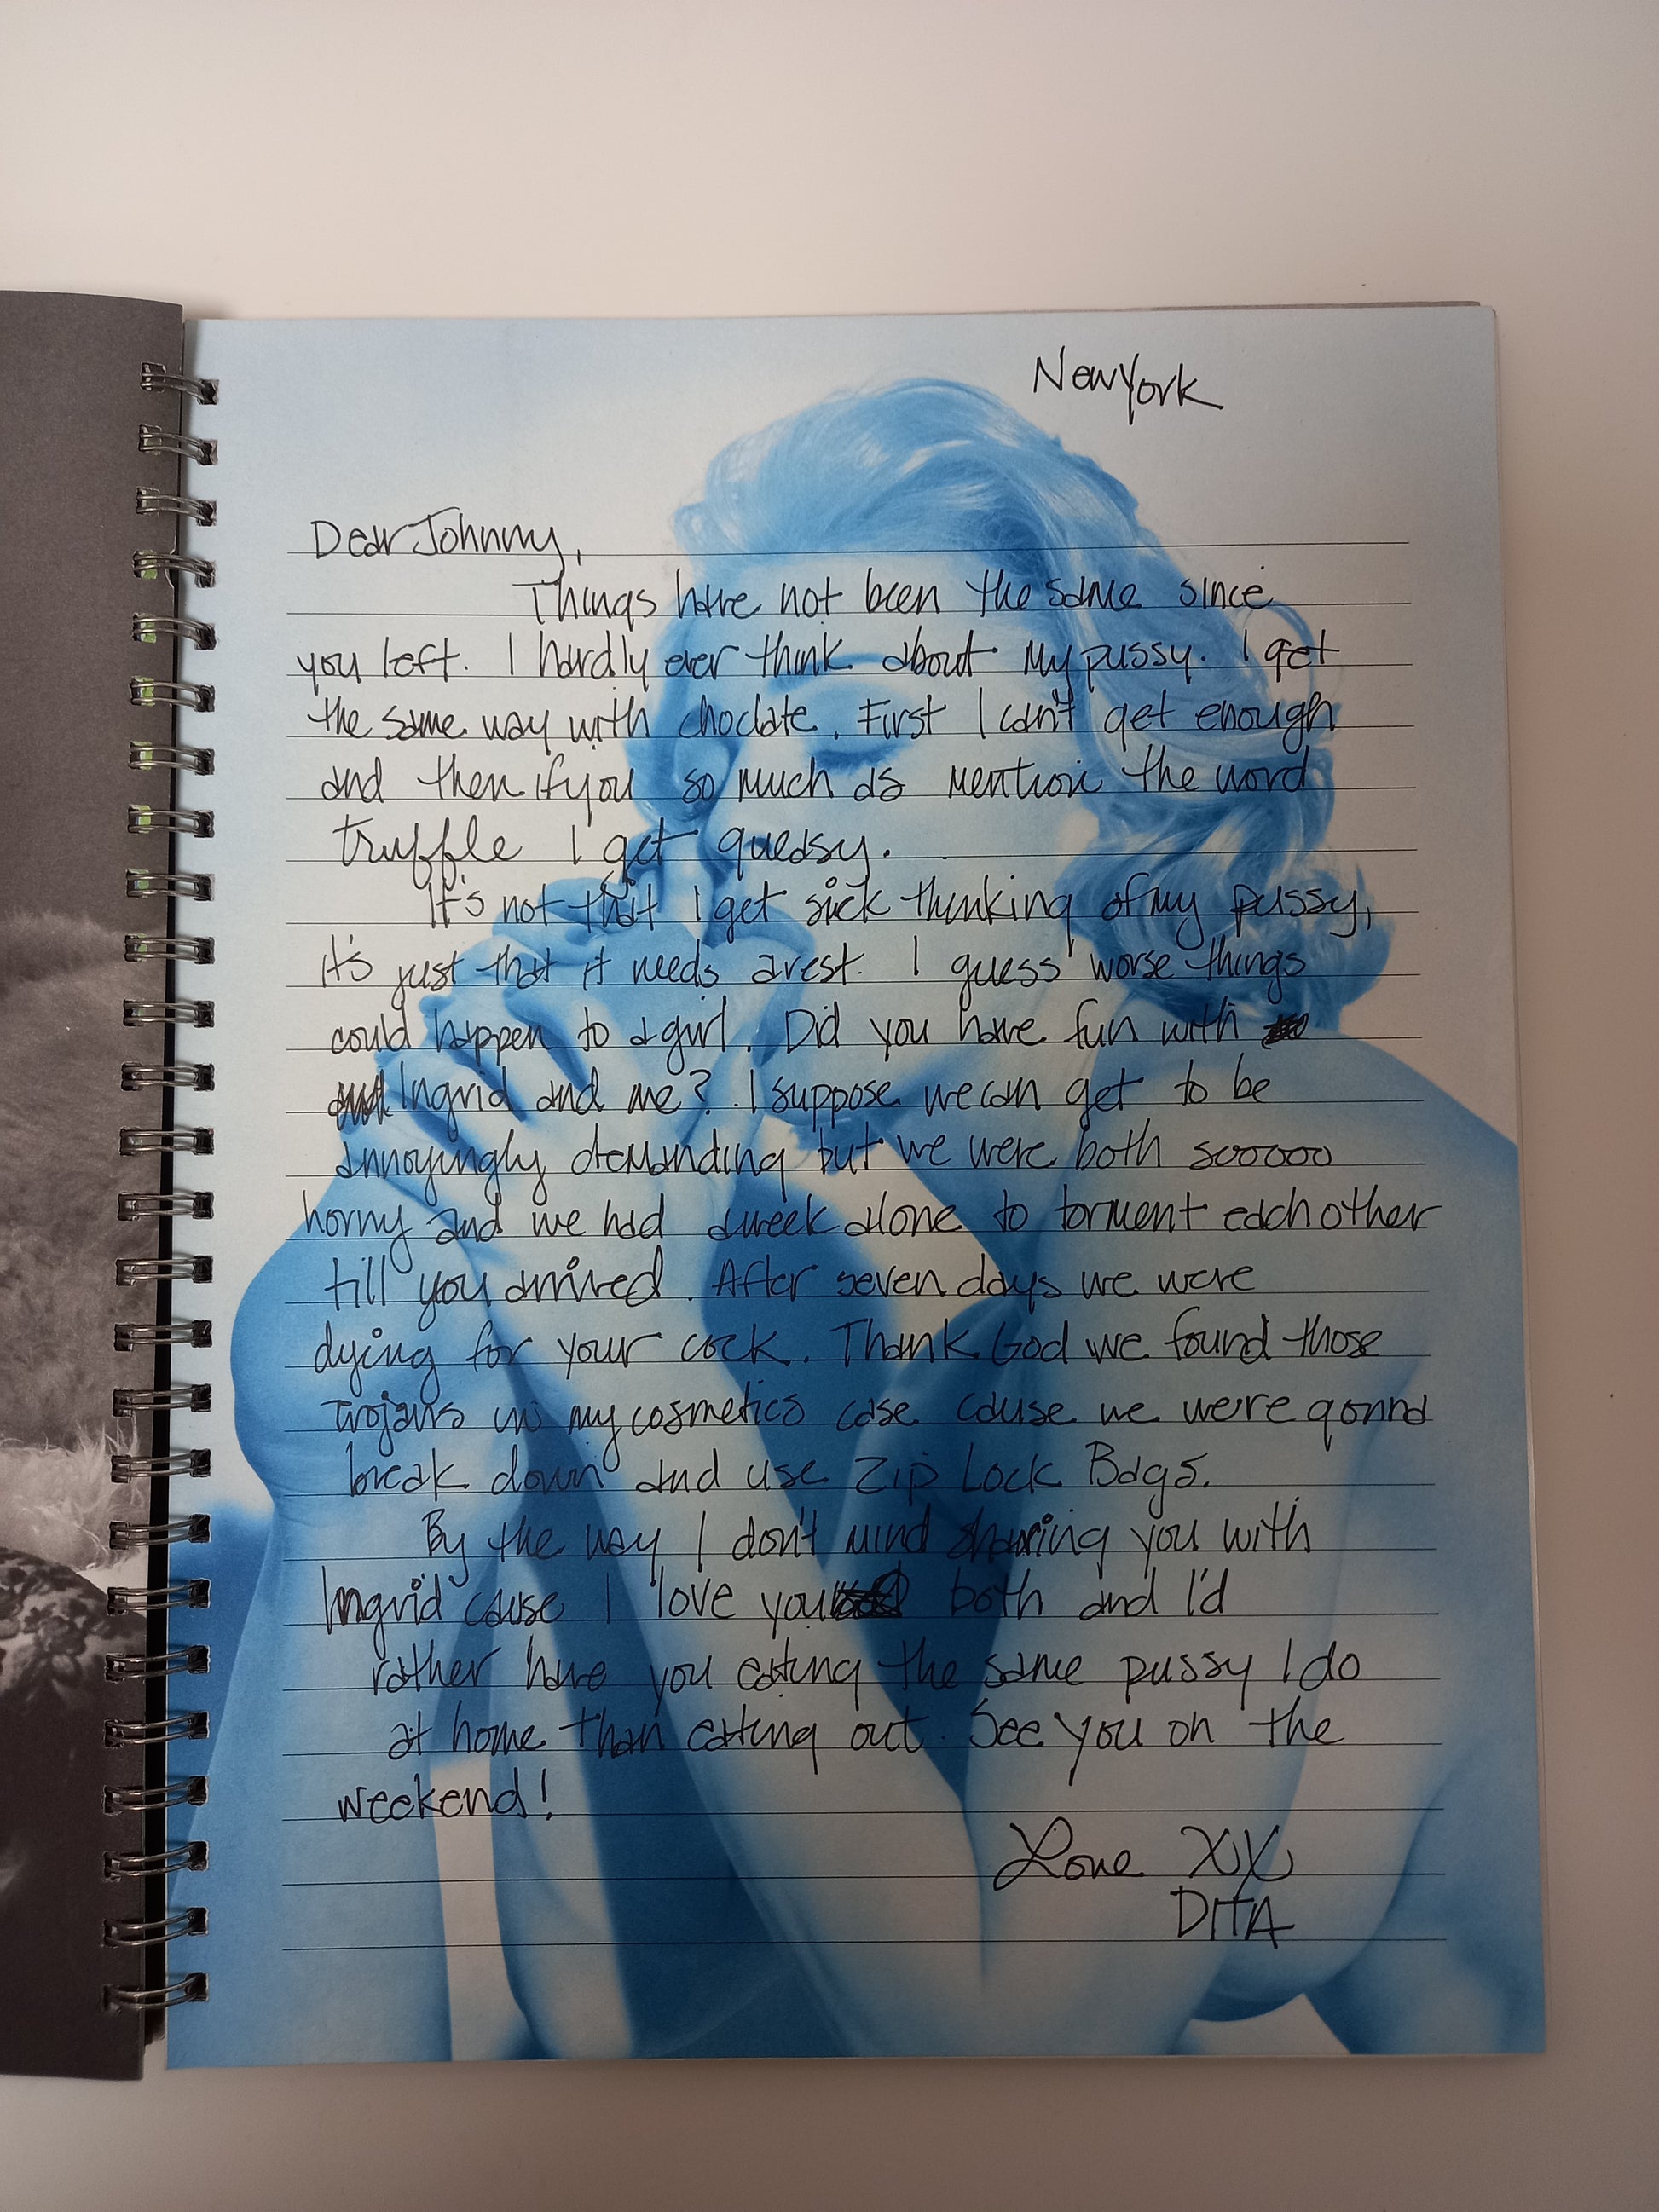 New York
Dear Johnny,
Things have not been the same since
you left. I hardly ever think about my pussy. I get
the same way with choclate. First I can't get enough
and then if you so much as mention the word
truffle I get queasy.
It's not that I get sick thinking of my pussy,
it's just that it needs a rest. I guess worse things
could happen to a girl. Did you have fun with
Ingrid and me? I suppose we can get to be
annoyingly demanding but we were both sooooo
horny and we had a week alone to torment each other
till you arrived. After seven days we were
dying for your cock. Thank God we found those
trojans in my cosmetics case cause we were gonna
break down and use Zip Lock Bags.
By the way I don't mind sharing you with
Ingrid cause I love you both and I'd
rather have you eating the same pussy I do
at home than eating out. See you on the
weekend!
Love XX
DITA